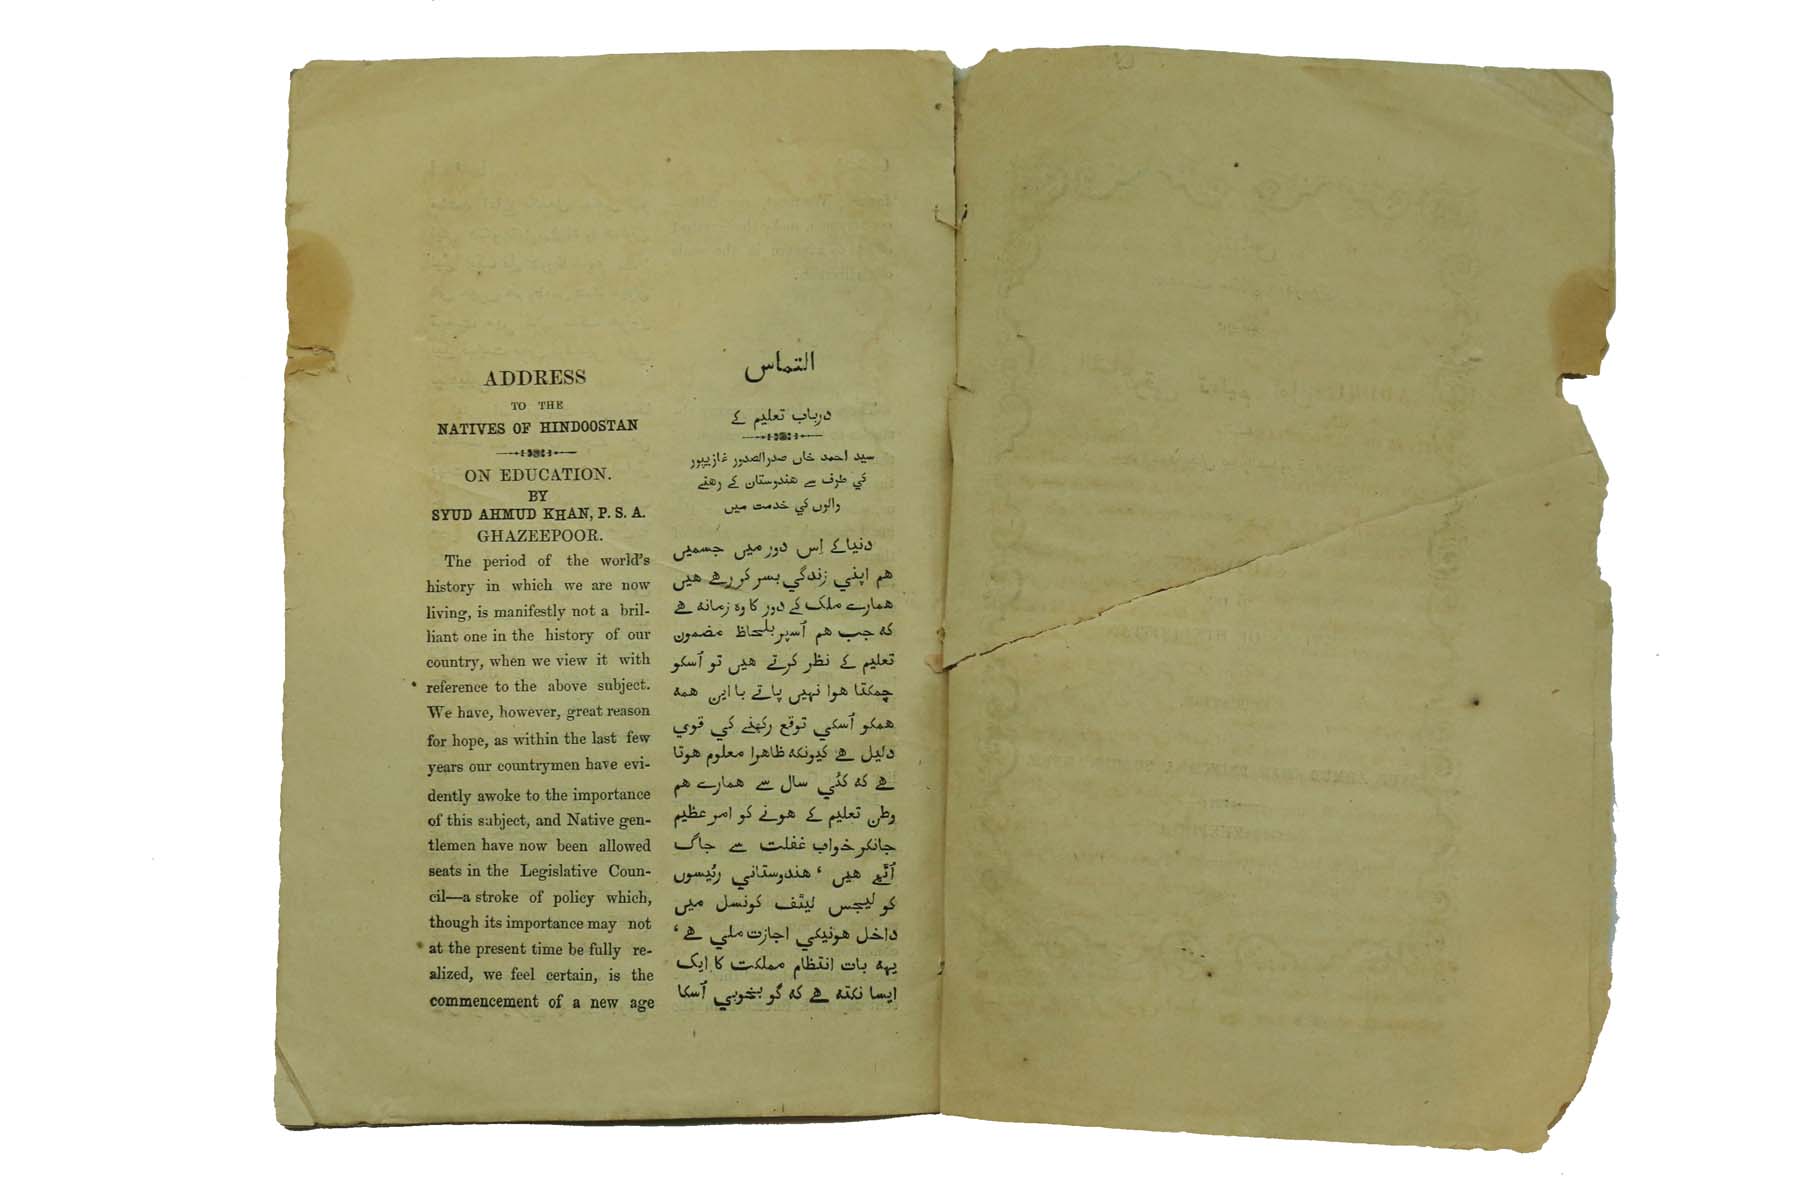 ADDRESS
TO THE
NATIVES OF HINDOOSTAN
ON EDUCATION.
BY
SYUD AHMUD KHAN, P. S. A.
GHAZEEPOOR.
The period of the world's
history in which we are now
living, is manifestly not a bril-
liant one in the history of our
country, when we view it with
reference to the above subject.
We have, however, great reason
for hope, as within the last few
years our countrymen have evi-
dently awoke to the importance
of this subject, and Native gen-
tlemen have now been allowed
seats in the Legislative Coun-
cil—a stroke of policy which,
though its importance may not
at the present time be fully re-
alized, we feel certain, is the
commencement of a new age
التماس
درباب تعلیم کے
سید احمد خاں صدرالصدور غازیپور
کي طرف سے هندوستان کے رهنے
والوں کي خدمت میں
دنیا کے اِس دور میں جسمیں
هم اپني زندگي بسر کر رهے هیں
همارے ملک کے دور کا وہ زمانہ هے
کہ جب هم اُسپر بلحاظ مضمون
تعلیم کے نظر کرتے هیں تو اُسکو
چمکتا هوا نہیں پاتے با این همہ
همکو اُسکي توقع رکھنے کي قوي
دلیل هے کیونکہ ظاهرا معلوم هوتا
هے کہ کئي سال سے همارے هم
وطن تعلیم کے هونے کو امر عظیم
جانکر خواب غفلت سے جاگ
اُٹھے هیں ‘ هندوستاني رئیسوں
کو لیجس لیٹف کونسل میں
داخل هونیکي اجازت ملي هے ‘
یہہ بات انتظام مملکت کا ایک
ایسا نکتہ هے کہ گو بخوبي اُسکا